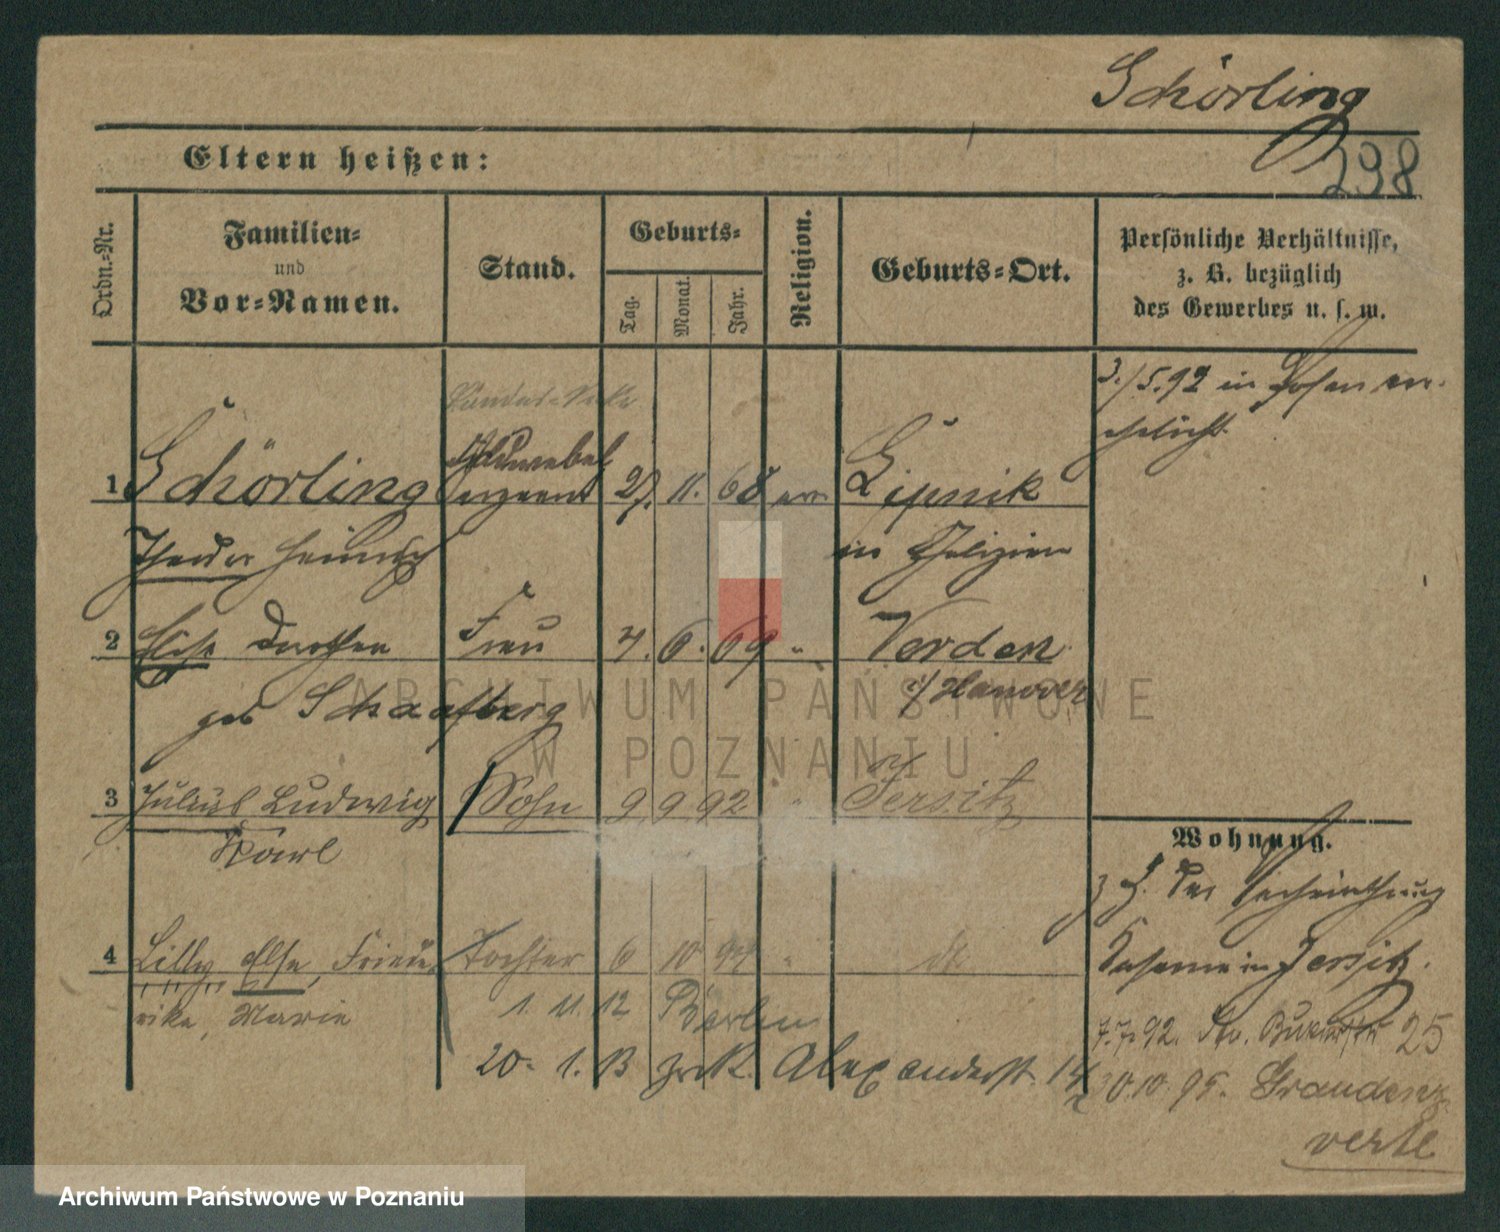 Schörling
298
Eltern heißen:
Ordn.-Nr.
Familien-
und
Vor-Namen.
Stand.
Geburts-
Tag.
Monat.
Jahr.
Religion.
Geburts-Ort.
Persönliche Verhältnisse,
z. B. bezüglich
des Gewerbes u. s. w.
3./5.92 in Posen ver-
ehelicht.
1 Schörling Sergeant 27. 11. 68 ev. Lipnik
Theodor Heinrich in Galizien
2 Elise Dorothea Frau 4. 6. 69 " Verden
geb Schaafberg i/Hanover
3 Julius Ludwig Sohn 9 9 92 " Jersitz
Karl
Wohnung.
4 Lilly Else, Friede Tochter 6 10 94 " do
rike, Marie
Kaserne in Jersitz.
1. 11. 12 Berlin
7.7.92. 25
20. 1. 13 zrk. Alexanderst. 14
20.10.95. Graudenz
verte
ARCHIWUM PAŃSTWOWE
W POZNANIU
Archiwum Państwowe w Poznaniu